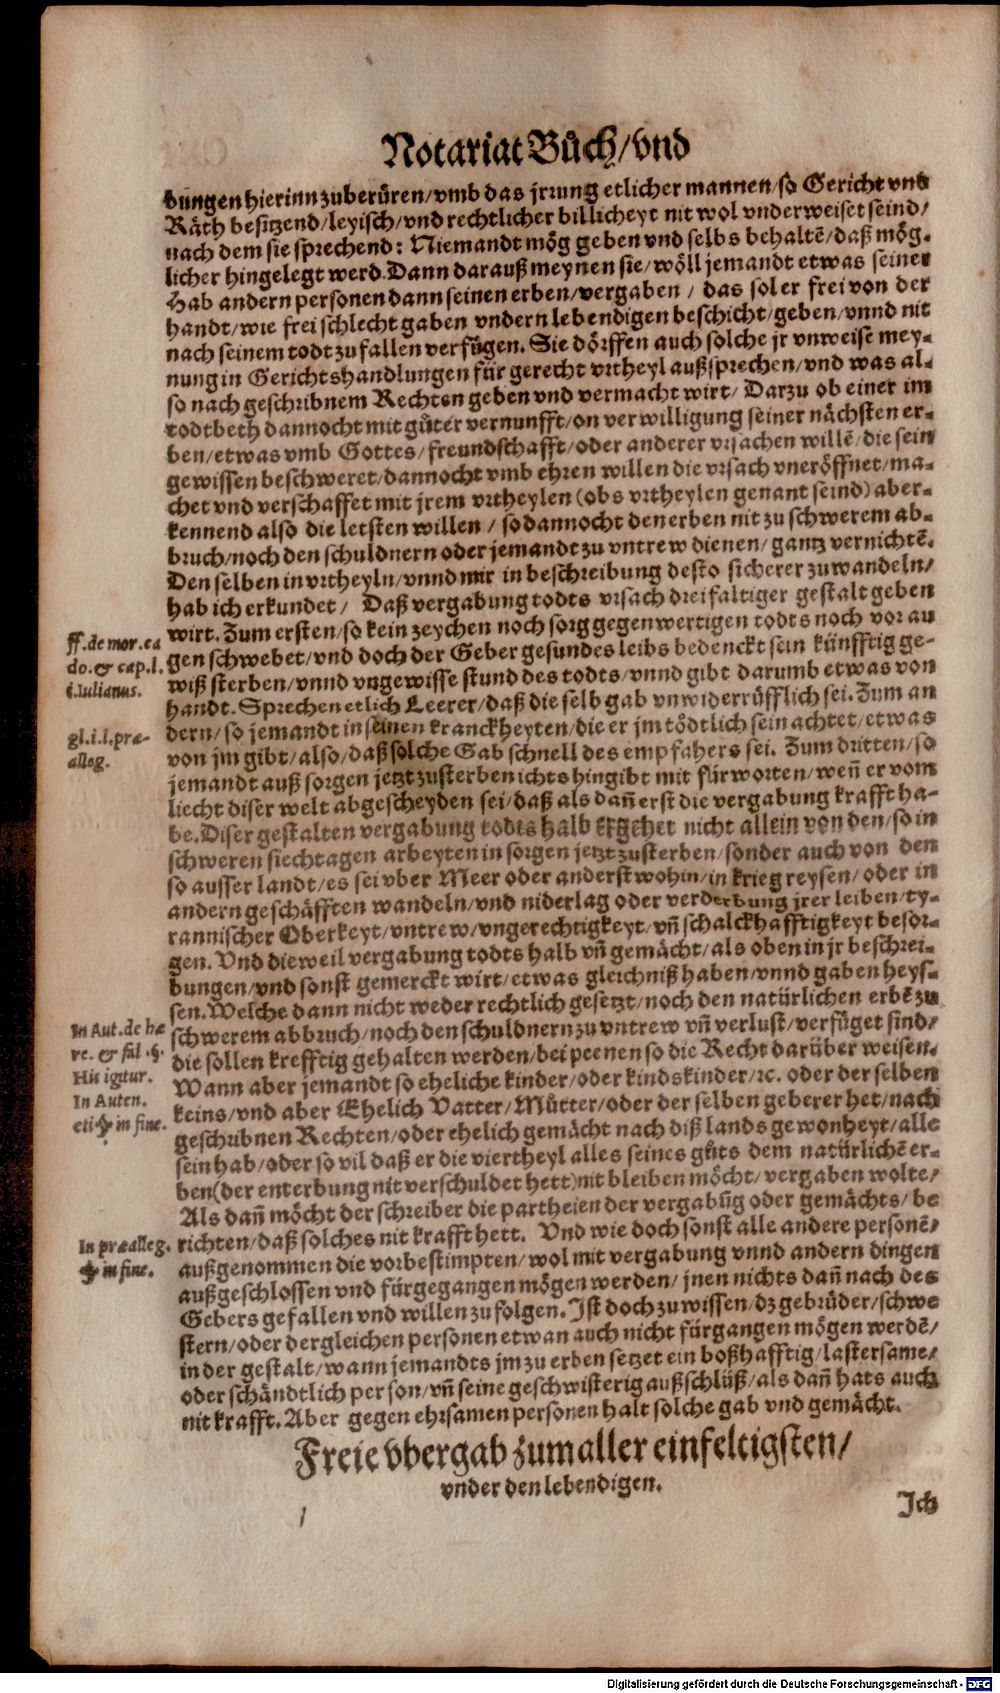 Notariat Bůch/vnd
bungen hierinn zuberüren/vmb das jrrung etlicher mannen/so Gericht vnd
Räth besitzend/leyisch/vnd rechtlicher billicheyt nit wol vnderweiset seind/
nach dem sie sprechend: Niemandt mög geben vnd selbs behaltē/daß mög-
licher hingelegt werd. Dann darauß meynen sie/wöll jemandt etwas seiner
Hab andern personen dann seinen erben/vergaben / das sol er frei von der
handt/wie frei schlecht gaben vndern lebendigen beschicht/geben/vnnd nit
nach seinem todt zufallen verfügen. Sie dörffen auch solche jr vnweise mey-
nung in Gerichtshandlungen für gerecht vrtheyl außsprechen/vnd was al-
so nach geschribnem Rechten geben vnd vermacht wirt/ Darzu ob einer im
todtbeth dannocht mit gůter vernunfft/on verwilligung seiner nächsten er-
ben/etwas vmb Gottes/freundschafft/oder anderer vrsachen willē/die sein
gewissen beschweret/dannocht vmb ehren willen die vrsach vneröffnet/ma-
chet vnd verschaffet mit jrem vrtheylen (obs vrtheylen genant seind) aber-
kennend also die letsten willen / so dannocht den erben nit zu schwerem ab-
bruch/noch den schuldnern oder jemandt zu vntrew dienen/gantz vernichtē.
Den selben in vrtheyln/vnnd mir in beschreibung desto sicherer zuwandeln/
hab ich erkundet / Daß vergabung todts vrsach dreifaltiger gestalt geben
wirt. Zum ersten/so kein zeychen noch sorg gegenwertigen todts noch vor au
gen schwebet/vnd doch der Geber gesundes leibs bedenckt sein künfftig ge-
wiß sterben/vnnd vngewisse stund des todts/vnnd gibt darumb etwas von
handt. Sprechen etlich Leerer/daß die selb gab vnwiderrüfflich sei. Zum an
dern/so jemandt in seinen kranckheyten/die er jm tödtlich sein achtet/etwas
von jm gibt/also/daß solche Gab schnell des empfahers sei. Zum dritten/so
jemandt auß sorgen jetzt zusterben ichts hingibt mit fürworten/weñ er vom
liecht diser welt abgescheyden sei/daß als dañ erst die vergabung krafft ha-
be. Diser gestalten vergabung todts halb ergehet nicht allein von den/so in
schweren siechtagen arbeyten in sorgen jetzt zusterben/sonder auch von den
so ausser landt/es sei vber Meer oder anderst wohin/in krieg reysen/oder in
andern geschäfften wandeln/vnd niderlag oder verderbung jrer leiben/ty-
rannischer Oberkeyt/vntrew/vngerechtigkeyt/vñ schalckhafftigkeyt besor-
gen. Vnd dieweil vergabung todts halb vñ gemächt/als oben in jr beschrei-
bungen/vnd sonst gemerckt wirt/etwas gleichniß haben/vnnd gaben heys-
sen. Welche dann nicht weder rechtlich gesetzt/noch den natürlichen erbē zu
schwerem abbruch/noch den schuldnern zu vntrew vñ verlust/verfüget sind/
die sollen krefftig gehalten werden/bei peenen so die Recht darüber weisen.
Wann aber jemandt so eheliche kinder/oder kindskinder/ꝛc. oder der selben
keins/vnd aber Ehelich Vatter/Mütter/oder der selben geberer het/nach
geschribnen Rechten/oder ehelich gemächt nach diß lands gewonheyt/alle
sein hab/oder so vil daß er die viertheyl alles seines gůts dem natürlichē er-
ben(der enterbung nit verschuldet hett)nit bleiben möcht/vergaben wolte/
Als dañ möcht der schreiber die partheien der vergabūg oder gemächts/be
richten/daß solches nit krafft hett. Vnd wie doch sonst alle andere personē/
außgenommen die vorbestimpten/wol mit vergabung vnnd andern dingen
außgeschlossen vnd fürgegangen mögen werden/jnen nichts dañ nach des
Gebers gefallen vnd willen zufolgen. Ist doch zuwissen/dz gebrüder/schwe
stern/oder dergleichen personen etwan auch nicht fürgangen mögen werdē/
in der gestalt/wann jemandts jm zu erben setzet ein boßhafftig/lastersame/
oder schändtlich person/vñ seine geschwisterig außschlüß/als dañ hats auch
nit krafft. Aber gegen ehrsamen personen halt solche gab vnd gemächt.
ff. de mor. ca
do. & cap. l.
i. Iulianus.
gl. i. l. præ-
alleg.
In Aut. de hæ
re. & fal. §.
Hii igitur.
In Auten.
in fine.
In præalleg.
in fine.
Freie vbergab zum aller einfeltigsten/
vnder den lebendigen.
Ich
Digitalisierung gefördert durch die Deutsche Forschungsgemeinschaft - DFG